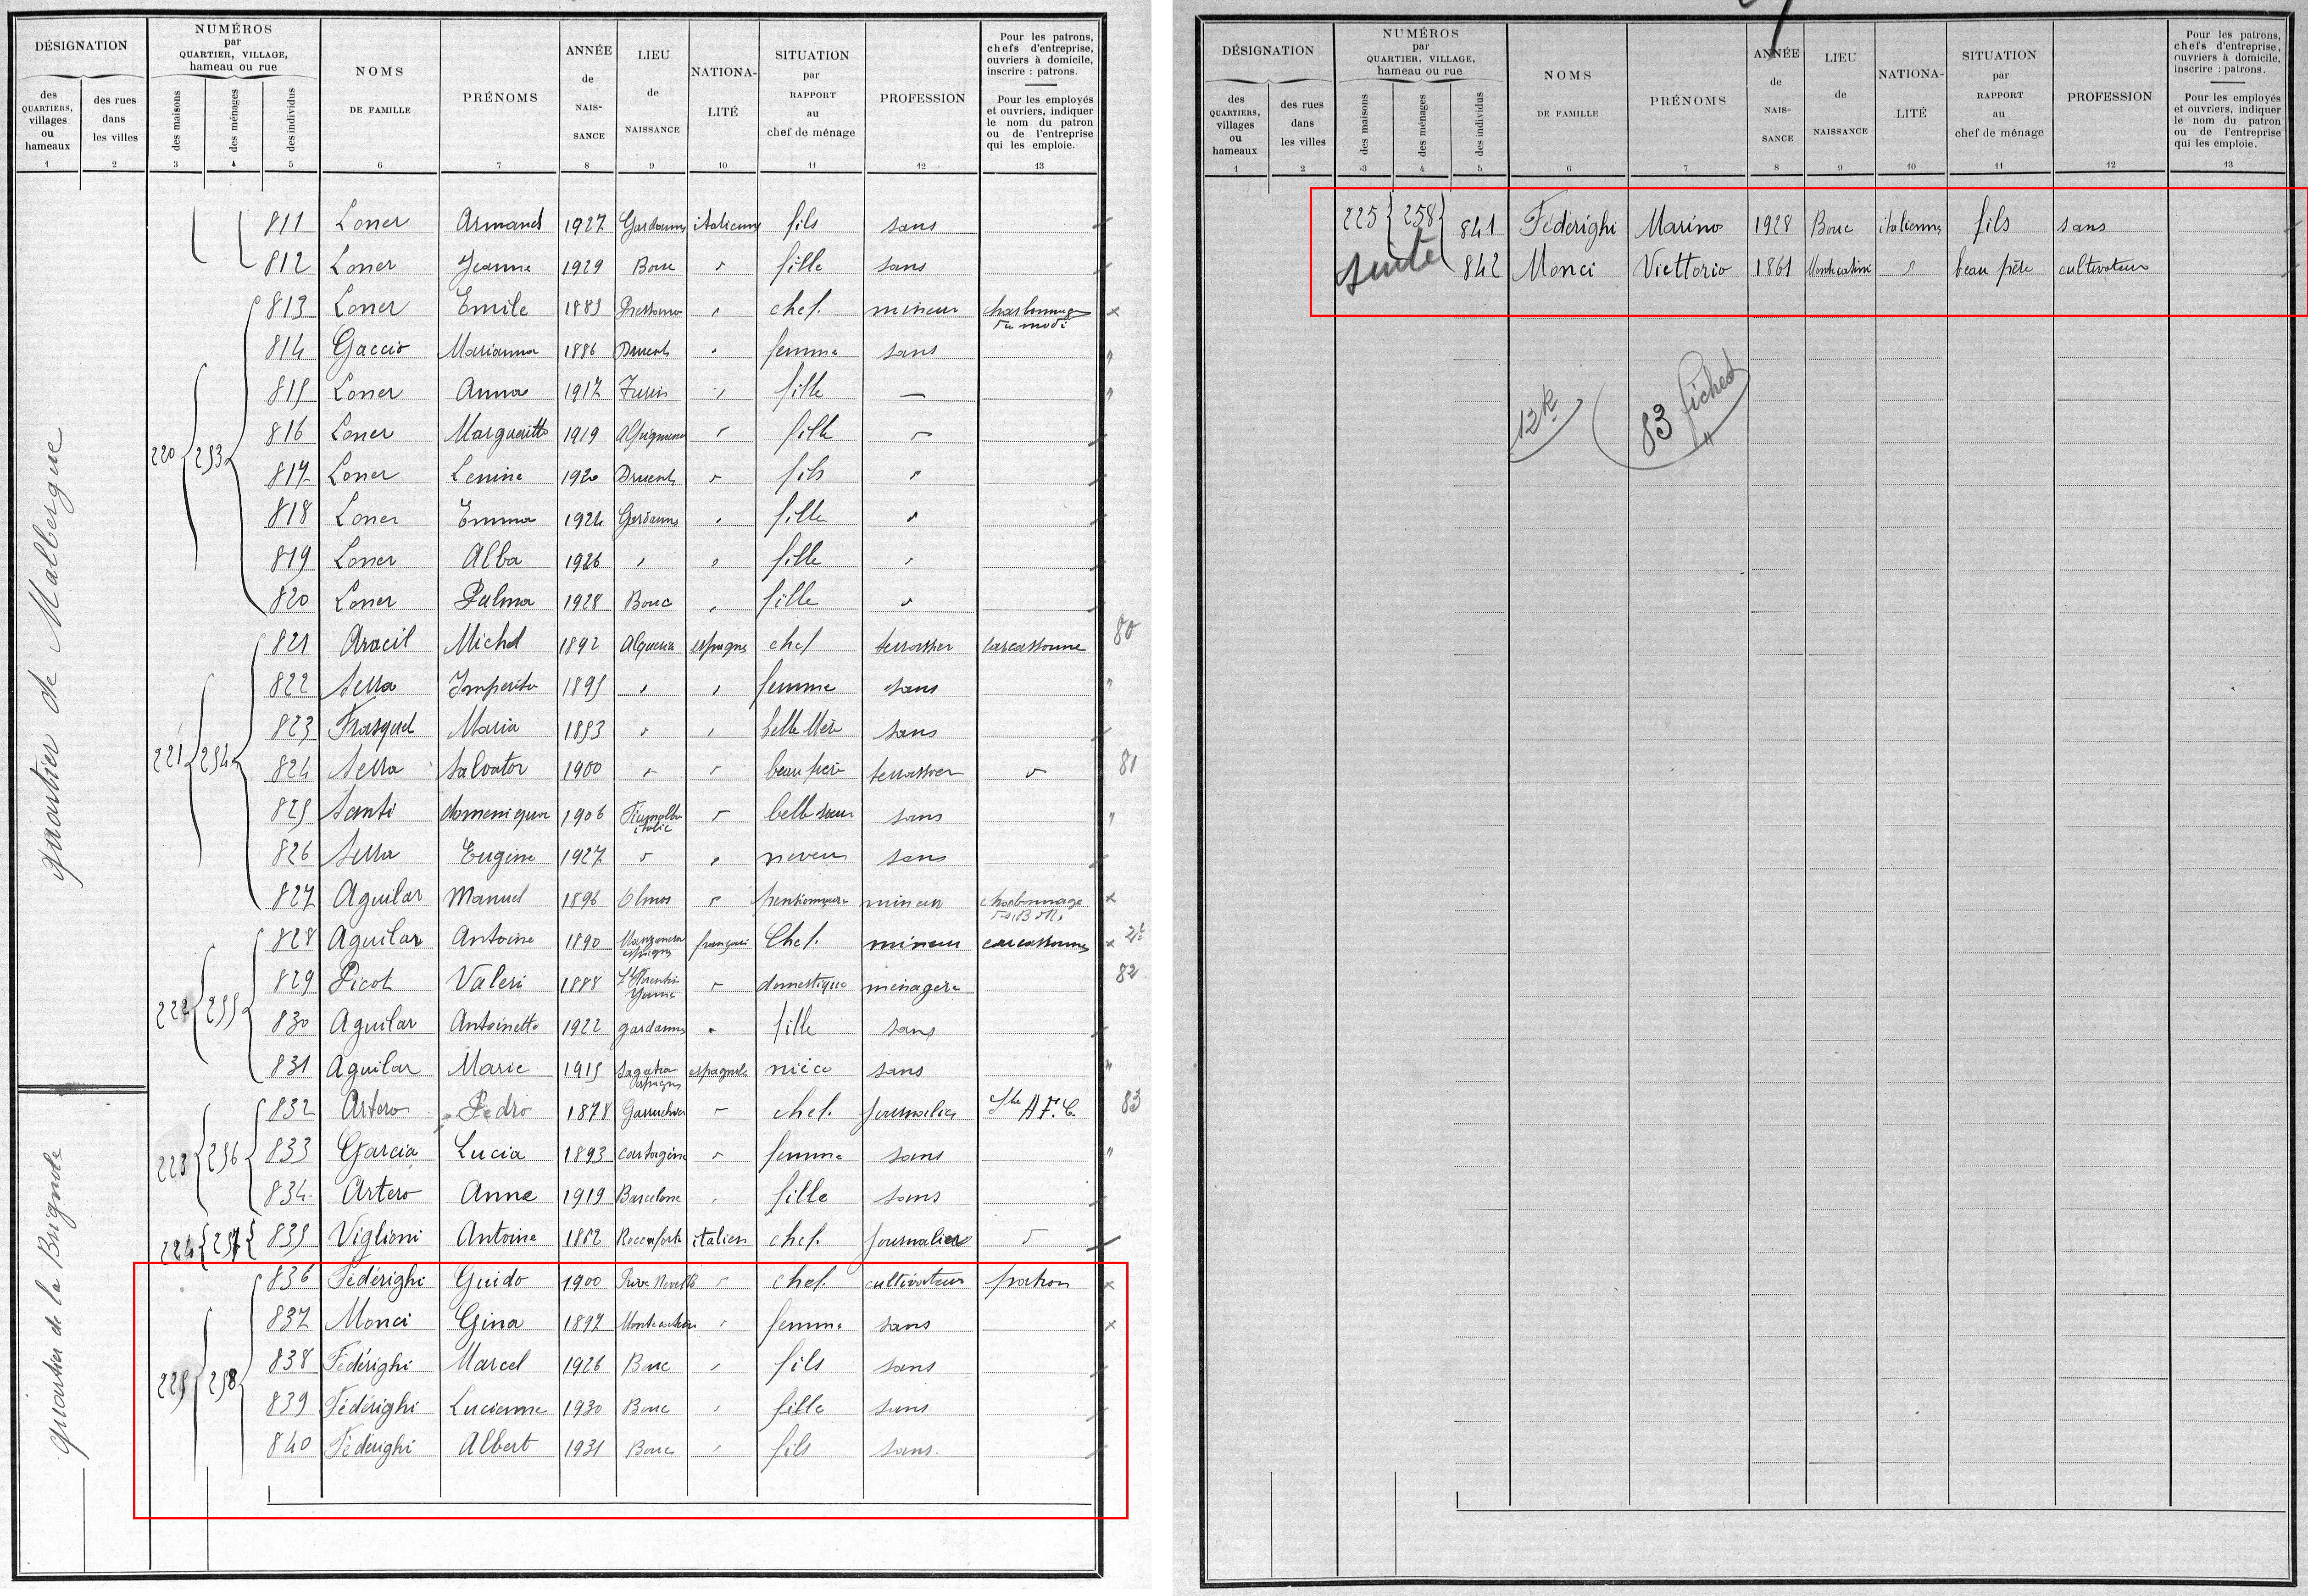 DÉSIGNATION
NUMÉROS
par
QUARTIER, VILLAGE,
hameau ou rue
NOMS
DE FAMILLE
PRÉNOMS
ANNÉE
de
NAIS-
SANCE
LIEU
de
NAISSANCE
NATIONA-
LITÉ
SITUATION
par
RAPPORT
au
chef de ménage
PROFESSION
Pour les patrons,
chefs d'entreprise,
ouvriers à domicile,
inscrire : patrons.
Pour les employés
et ouvriers, indiquer
le nom du patron
ou de l'entreprise
qui les emploie.
des
QUARTIERS,
villages
ou
hameaux
des rues
dans
les villes
des maisons
des ménages
des individus
1 2 3 4 5 6 7 8 9 10 11 12 13
quartier de Malbergue
811 Loner Armand 1927 Gardanne italienne fils sans
812 Loner Jeanne 1929 Bouc " fille sans
220 253
813 Loner Emile 1883 " chef. mineur charbonnage
814 Gaccio Marianna 1886 Druent " femme sans
815 Loner Anna 1917 Turin " fille —
816 Loner Margueritte 1919 " fille "
817 Loner Lenine 1920 Druent " fils "
818 Loner Emma 1924 Gardanne " fille "
819 Loner Alba 1926 " " fille "
820 Loner Palma 1928 Bouc " fille "
221 254
821 Aracil Michel 1892 Algueria espagne chef terrassier carcassonne 80
822 Serra 1895 " " femme sans
823 Frasquel Maria 1853 " " belle Mère sans
824 Serra Salvator 1900 " " beau frère terrassier " 81
825 Santi domeniqua 1906 italie " belle soeur sans
826 Serra Eugène 1927 " " neveu sans
827 Aguilar Manuel 1896 Olmos " pensionnaire mineur charbonnage
222 255
828 Aguilar Antoine 1890 espagne français Chef. mineur carcassonne
829 Picot Valeri 1888 St Florentin Yonne " domestique ménagère 82
830 Aguilar Antoinette 1922 gardanne " fille sans
831 Aguilar Marie 1915 espagne espagnole nièce sans
quartier de la Brignole
223 256
832 Artero Pedro 1878 Garrucha " chef. journalier Sté A F. C. 83
833 Garcia Lucia 1893 Cartagène " femme sans
834 Artero Anne 1919 Barcelone " fille sans
224 257
835 Viglioni Antoine 1862 Roccaforte italien chef. journalier "
225 258
836 Fédérighi Guido 1900 " chef. cultivateur patron
837 Monci Gina 1897 Montecatini " femme sans
838 Fédérighi Marcel 1926 Bouc " fils sans
839 Fédérighi Lucienne 1930 Bouc " fille sans
840 Fédérighi Albert 1931 Bouc " fils sans.
DÉSIGNATION
NUMÉROS
par
QUARTIER, VILLAGE,
hameau ou rue
NOMS
DE FAMILLE
PRÉNOMS
ANNÉE
de
NAIS-
SANCE
LIEU
de
NAISSANCE
NATIONA-
LITÉ
SITUATION
par
RAPPORT
au
chef de ménage
PROFESSION
Pour les patrons,
chefs d'entreprise,
ouvriers à domicile,
inscrire : patrons.
Pour les employés
et ouvriers, indiquer
le nom du patron
ou de l'entreprise
qui les emploie.
des
QUARTIERS,
villages
ou
hameaux
des rues
dans
les villes
des maisons
des ménages
des individus
1 2 3 4 5 6 7 8 9 10 11 12 13
225 258 841 Fédérighi Marino 1928 Bouc italienne fils sans
suite 842 Monci Viettorio 1861 Montecatini " beau père cultivateur
12 R
83 fiches